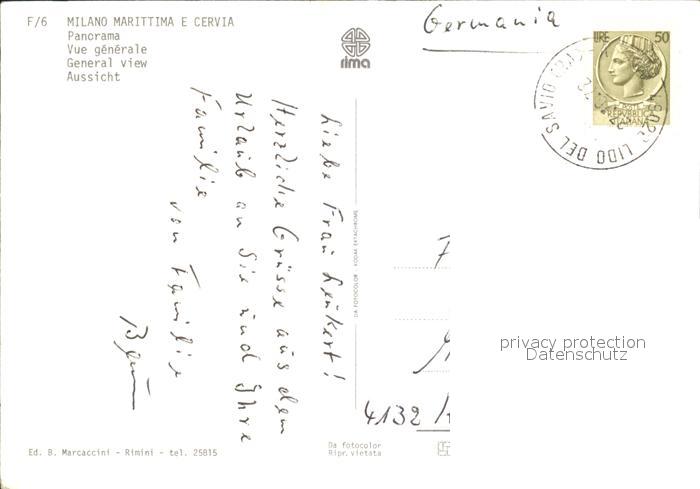 F/6 MILANO MARITTIMA E CERVIA
Panorama
Vue générale
General view
Aussicht
rima
Germania
LIRE 50
REPVBBLICA
ITALIANA
LIDO DEL SAVIO
Liebe Frau Leukert!
Herzliche Grüsse aus dem
Urlaub an Sie und Ihre
Familie
von Familie
DA FOTOCOLOR KODAK EKTACHROME
4132
privacy protection
Datenschutz
Ed. B. Marcaccini - Rimini - tel. 25815
Da fotocolor
Ripr. vietata